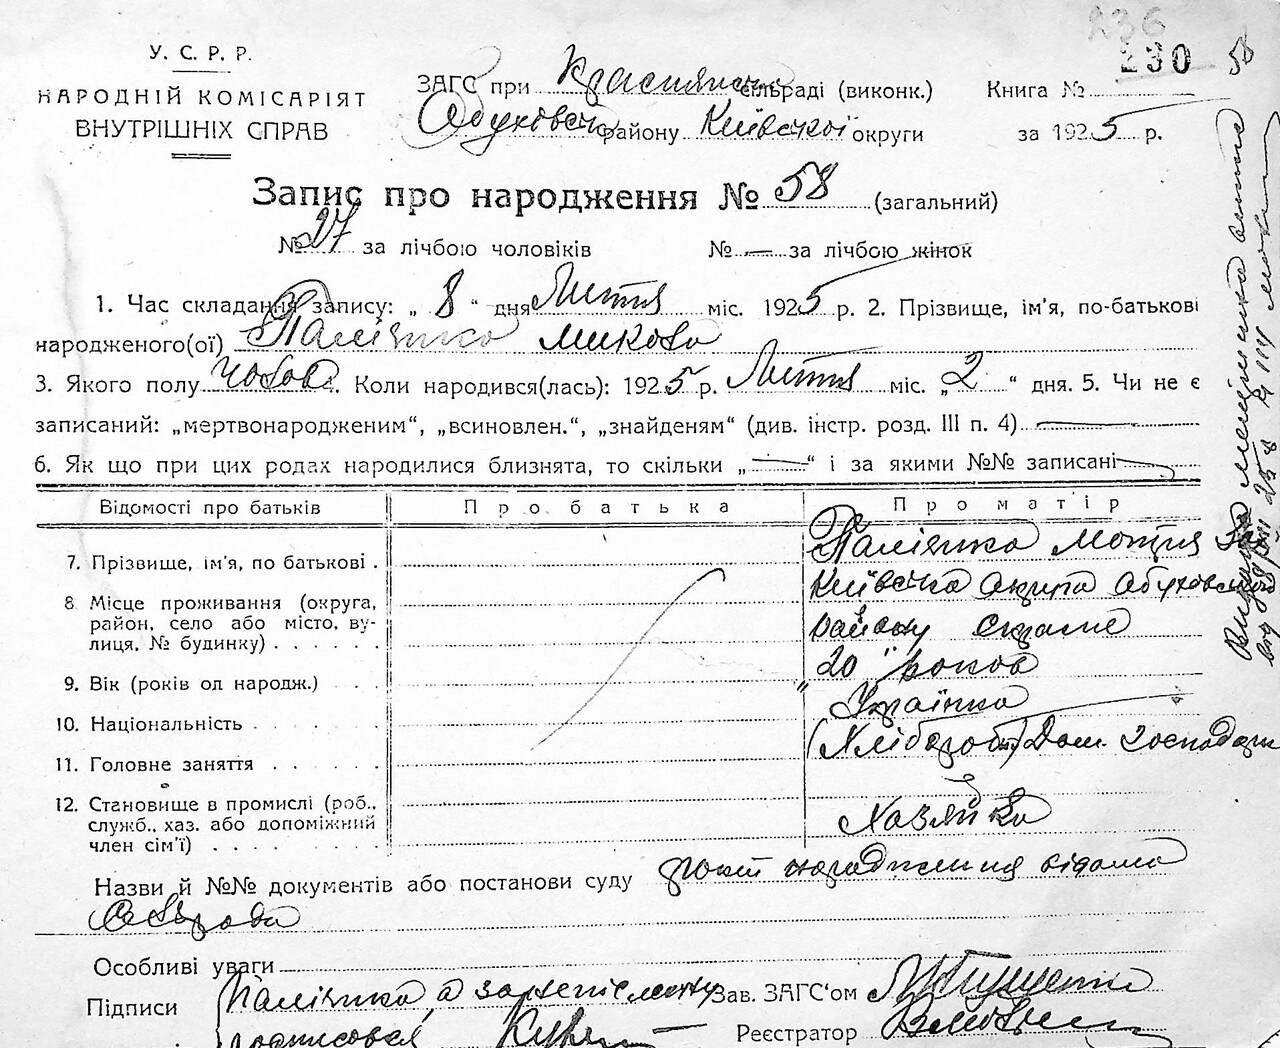 236
230 58
У. С. Р. Р.
НАРОДНІЙ КОМІСАРІЯТ
ВНУТРІШНІХ СПРАВ
ЗАГС при сільраді (виконк.) Книга №
Обуховськ району Київської округи за 1925 р.
Запис про народження № 58 (загальний)
№ 27 за лічбою чоловіків № — за лічбою жінок
1. Час складання запису: „ 8 “ дня Лютня міс. 1925 р. 2. Прізвище, ім'я, по-батькові
народженого(ої) Палієнко Микола
3. Якого полу Чолов. Коли народився(лась): 1925 р. Лютня міс. „ 2 “ дня. 5. Чи не є
записаний: „мертвонародженим“, „всиновлен.“, „знайденям“ (див. інстр. розд. III п. 4)
6. Як що при цих родах народилися близнята, то скільки „ — “ і за якими №№ записані
Відомості про батьків Про батька Про матір
7. Прізвище, ім'я, по батькові . Палієнко Мотря
8. Місце проживання (округа, район, село або місто, вулиця, № будинку) Київська округа Обуховського
району
9. Вік (років од народж.) „20" років
10. Національність Українка
11. Головне заняття (Хлібороб) Дом. господар
12. Становище в промислі (роб., служб., хаз. або допоміжний член сім'ї) Хазяйка
Назви й №№ документів або постанови суду народження відома
Особливі уваги
Підписи Палієнко а Зав. ЗАГС'ом
Реєстратор